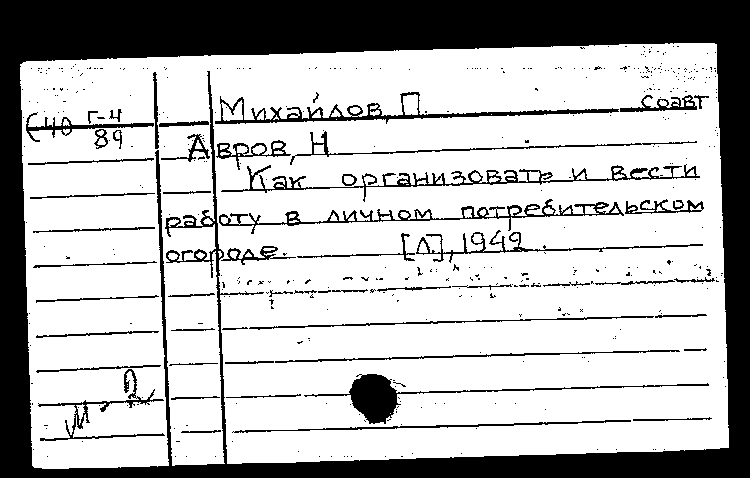 Михайлов, П. соавт
С40 Г-4
89
Авров, Н.
Как организовать и вести
работу в личном потребительском
огороде. [Л.], 1942.